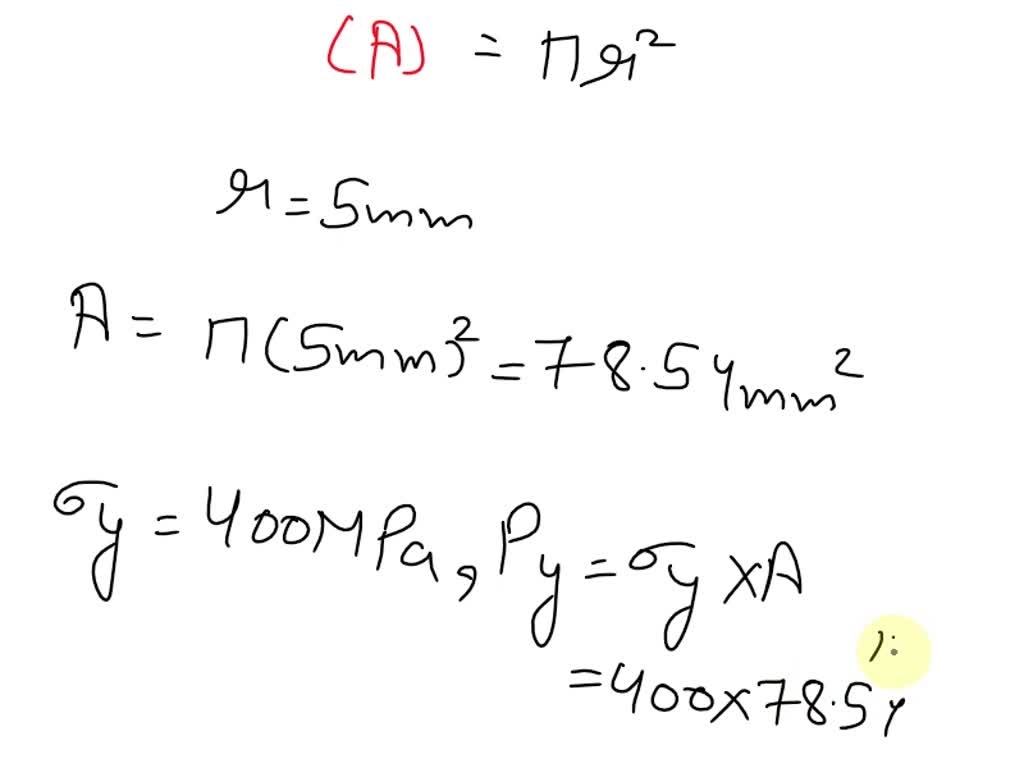 (A) = πr²
r = 5mm
A = π(5mm)² = 78.54mm²
σy = 400MPa, Py = σy × A
= 400 × 78.54